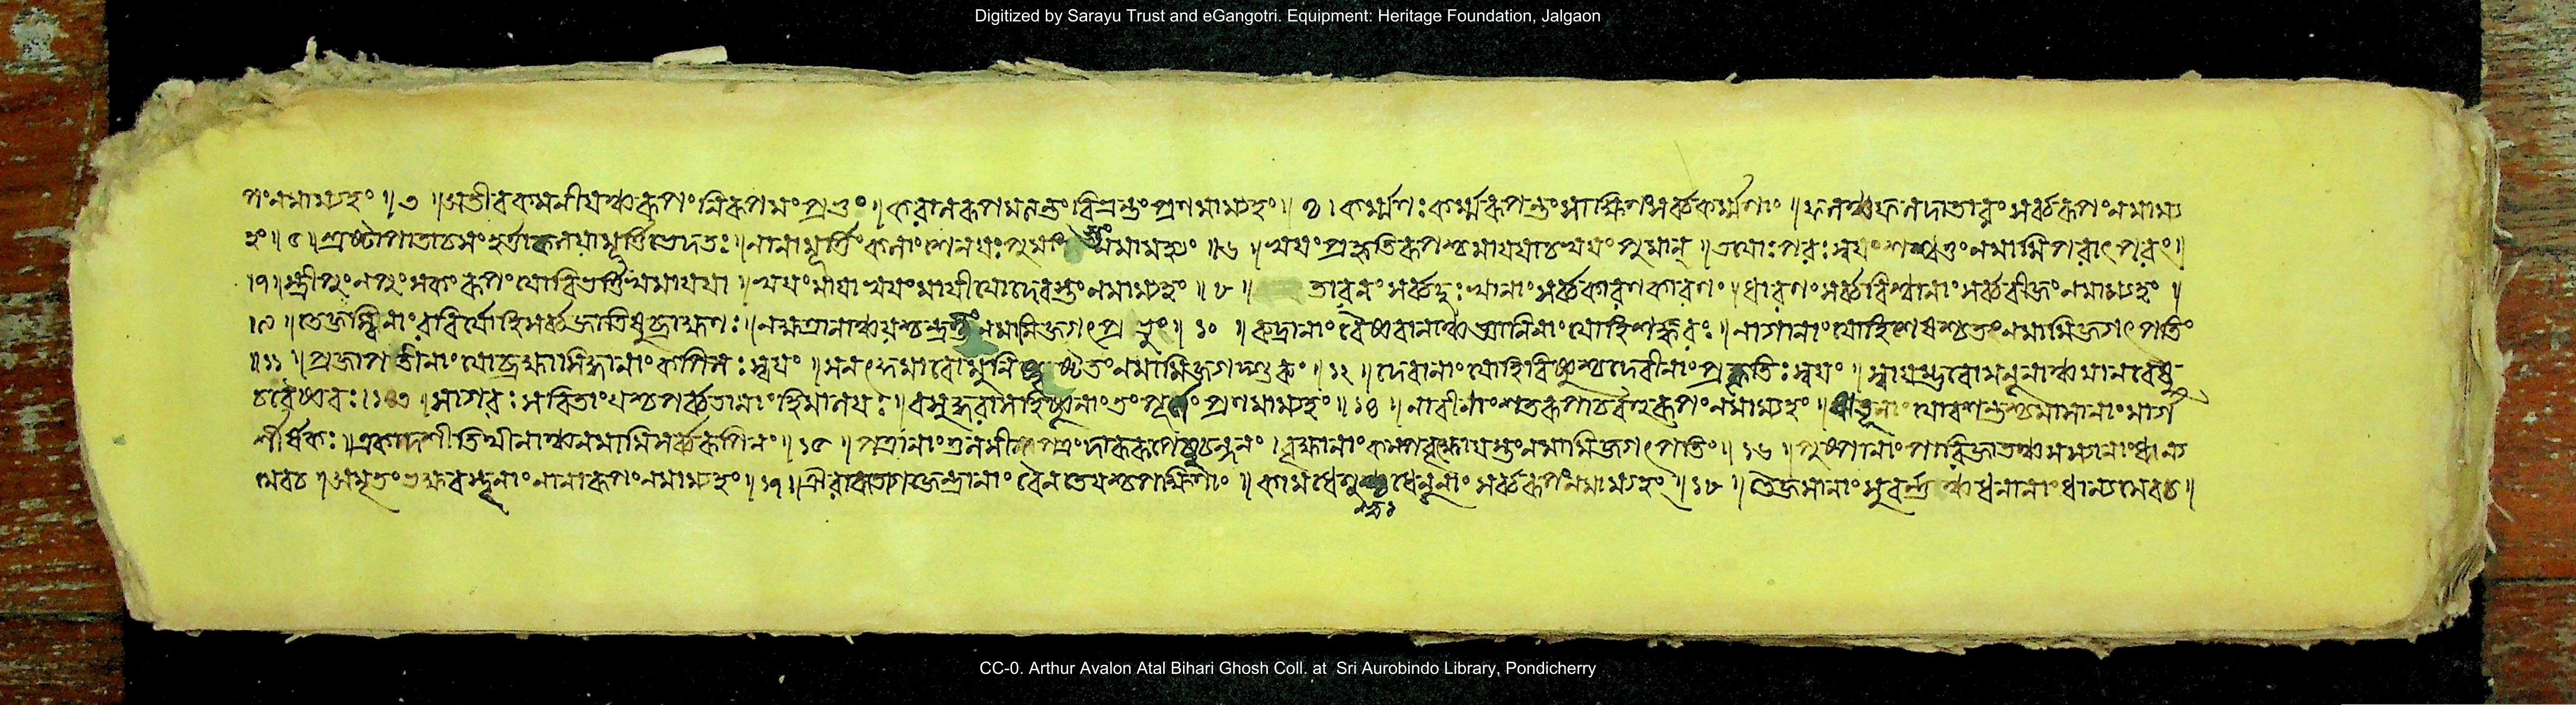 Digitized by Sarayu Trust and eGangotri. Equipment: Heritage Foundation, Jalgaon
পং নমাম্যহং ॥ ৩ ॥ অতীবকমনীয়ঞ্চরূপং নিরূপমং প্রভুং । করালরূপমত্যন্তং বিভ্রন্তং প্রণমাম্যহং ॥ ৪ । কর্ম্মণঃ কর্ম্মরূপন্তং সাক্ষিণং সর্ব্বকর্ম্মণাং ॥ ফলঞ্চফলদাতারং সর্ব্বরূপং নমাম্য
হং ॥ ৫ ॥ স্রষ্টাপাতাচসংহর্ত্তা কলয়ামূর্ত্তিভেদতঃ ॥ নানামূর্ত্তিঃ কলাংশেনযঃ পুমাং নমামহ্যং ॥ ৬ ॥ স্বয়ং প্রকৃতিরূপশ্চমায়য়াচস্বয়ং পুমান্ ॥ তয়োঃ পরঃ স্বয়ং শশ্বত্তং নমামিপরাৎপরং ॥
। ৭ ॥ স্ত্রীপুংনপুংসকং রূপং যোবিভর্ত্তিস্বমায়য়া ॥ স্বয়ং মায়াস্বয়ং মায়ীযোদেবস্তং নমাম্যহং ॥ ৮ ॥ তারণং সর্ব্বদুঃখানাং সর্ব্বকারণকারণং ॥ ধারণং সর্ব্ববিশ্বানাং সর্ব্ববীজং নমাম্যহং ॥
। ৯ ॥ তেজস্বিনাং রবির্যোহিসর্ব্বজাতিষুব্রাহ্মণঃ ॥ নক্ষত্রানাঞ্চয়শ্চন্দ্রস্তং নমামিজগৎপ্রভুং ॥ ১০ ॥ রুদ্রানাং বৈষ্ণবানাঞ্চজ্ঞানিনাং যোহিশঙ্করঃ ॥ নাগানাং যোহিশেষশ্চতং নমামিজগৎপতিং
॥ ১১ ॥ প্রজাপতীনাং যোব্রহ্মাসিদ্ধানাং কপিলঃ স্বয়ং ॥ সনৎকুমারোমুনিষু তং নমামিজগদ্গুরুং ॥ ১২ ॥ দেবানাং যোহিবিষ্ণুশ্চদেবীনাং প্রকৃতিঃ স্বয়ং ॥ স্বায়ম্ভুবোমনূনাঞ্চমানবেষু
চবৈষ্ণবঃ । ১৩ ॥ সাগরঃ সরিতাং যশ্চপর্ব্বতানাং হিমালয়ঃ ॥ বসুন্ধরাসহিষ্ণূনাং তং প্রণমাম্যহং ॥ ১৪ ॥ নারীনাংশতরূপাচবহুরূপং নমাম্যহং ॥ ঋতূনাং যোবসন্তশ্চমাসানাং মার্গ
শীর্ষকঃ ॥ একাদশীতিথীনাঞ্চনমামিসর্ব্বরূপিনং ॥ ১৫ ॥ পত্রানাং তুলসীপত্রং দারুরূপেষুচন্দনং । বৃক্ষানাং কল্পবৃক্ষোযস্তং নমামিজগৎপতিং ॥ ১৬ ॥ পুষ্পানাং পারিজাতঞ্চসস্যানাং ধান্য
মেবচ ॥ অমৃতং ভক্ষবস্তূনাং নানারূপং নমাম্যহং ॥ ১৭ ॥ ঐরাবতোগজেন্দ্রানাং বৈনতেয়শ্চপক্ষিণাং ॥ কামধেনুশ্চধেনূনাং সর্ব্বরূপং নমাম্যহং ॥ ১৮ ॥ তৈজসানাং সুবর্ণঞ্চধনানাং ধান্যমেবচ ॥
CC-0. Arthur Avalon Atal Bihari Ghosh Coll. at Sri Aurobindo Library, Pondicherry